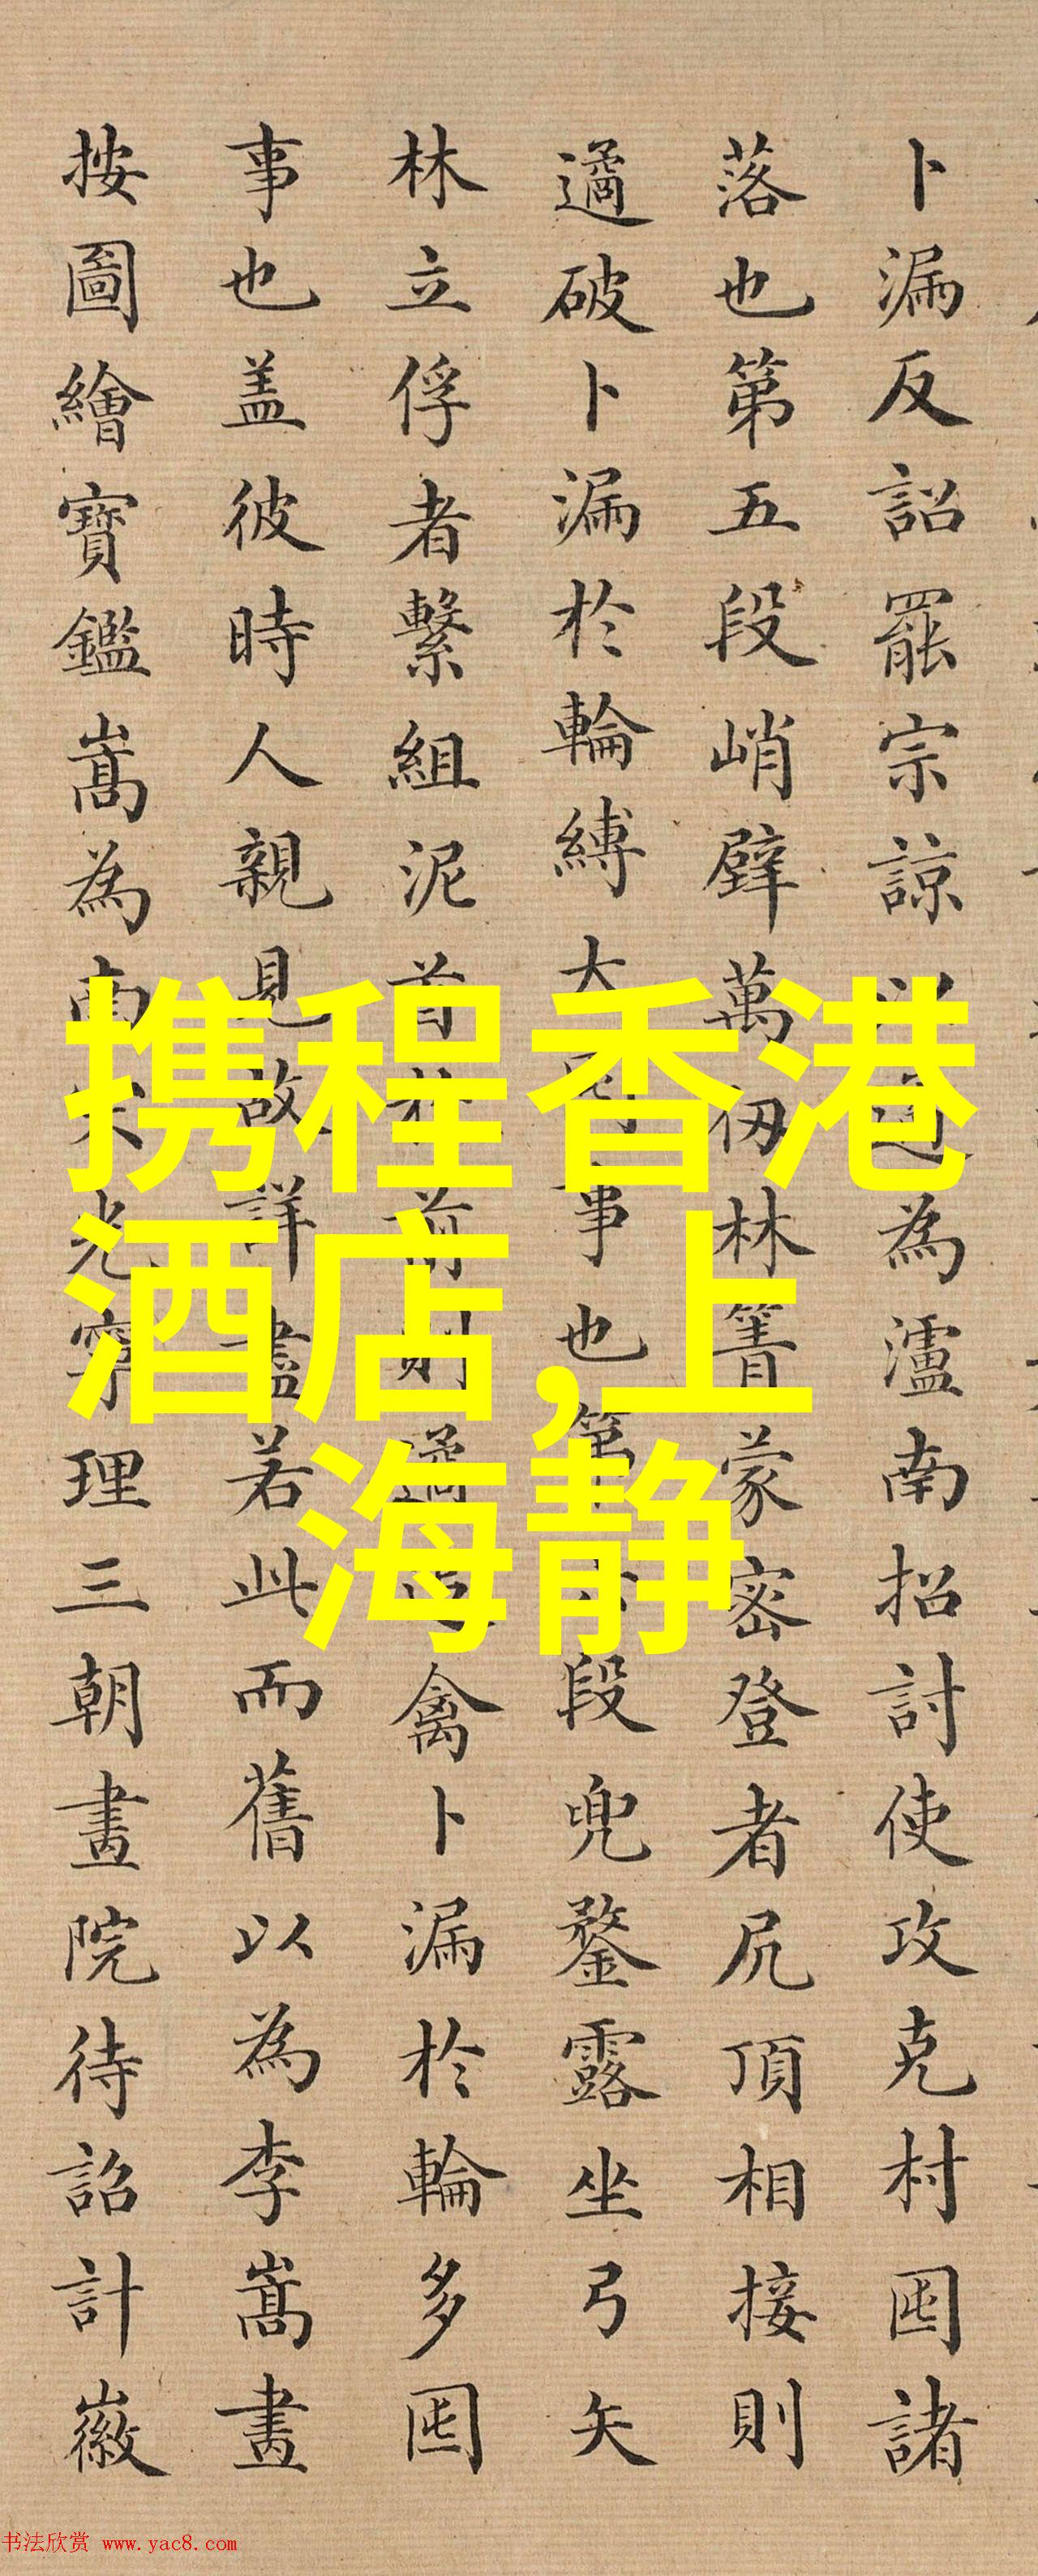 卜漏反詔罷宗諒以遹為瀘南招討使攻克村囤諸
落也第五段峭壁萬仞林箐蒙密登者尻頂相接則
遹破卜漏於輪縛大事也第段兜鍪露坐弓矢
林立俘者繫組泥首於前則遹之禽卜漏於輪多囤
事也盖彼時人親見故詳盡若此而舊以為李嵩畫
按圖繪寶鑑嵩為南宋光寧理三朝畫院待詔計徽
携程香港
酒店,上
海静
书法欣赏 www.yac8.com